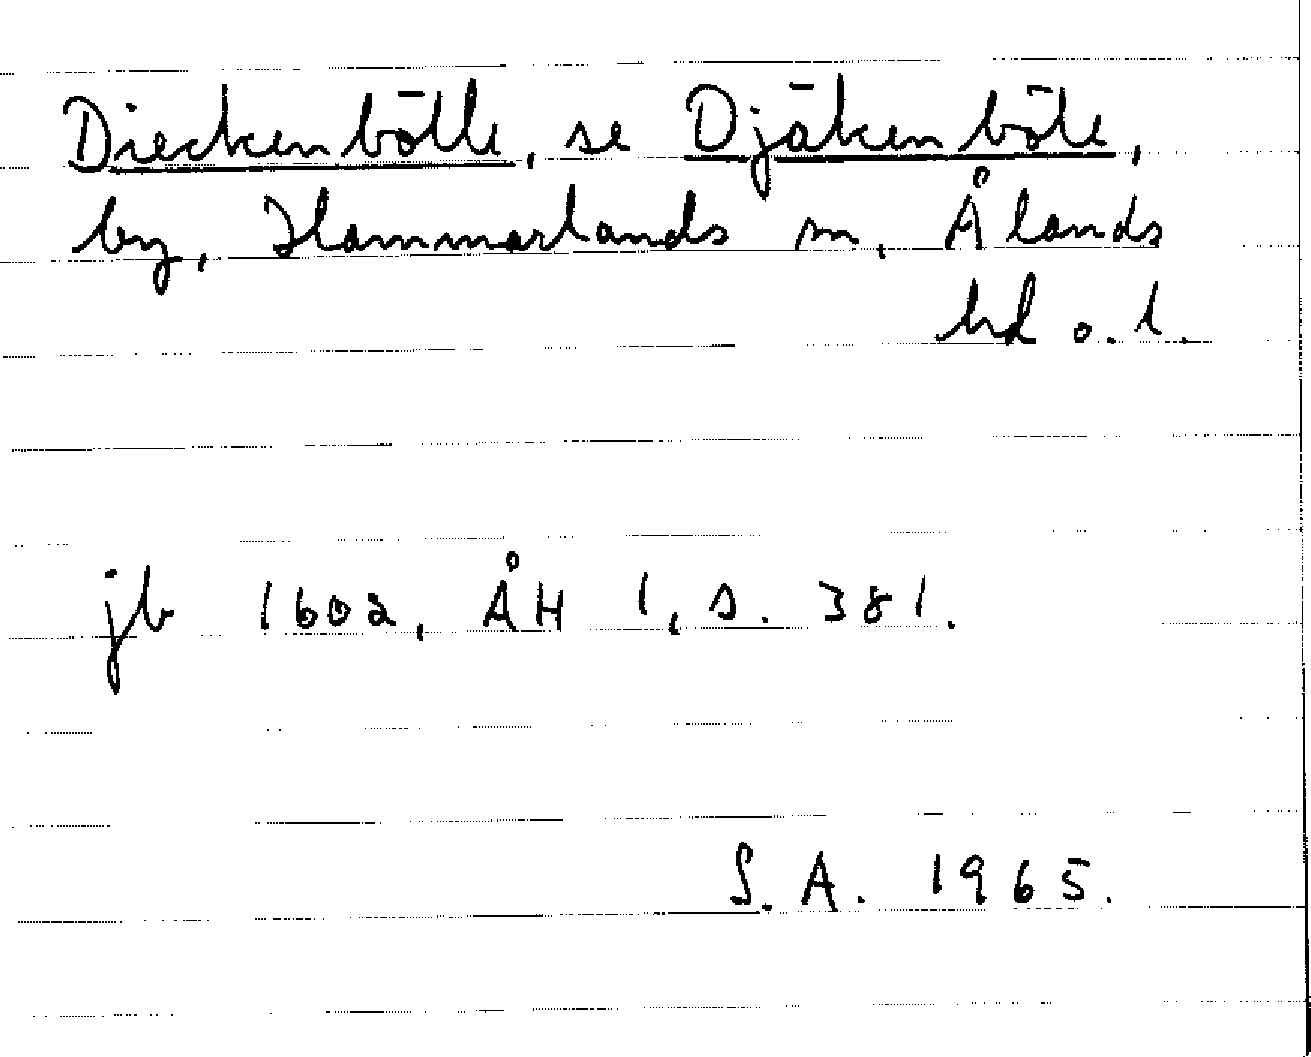 Dieckenbölle, se Djäkenböle,
by, Hammarlands sn, Ålands
hd o. l.
jb 1602, ÅH 1, s. 381.
S. A. 1965.